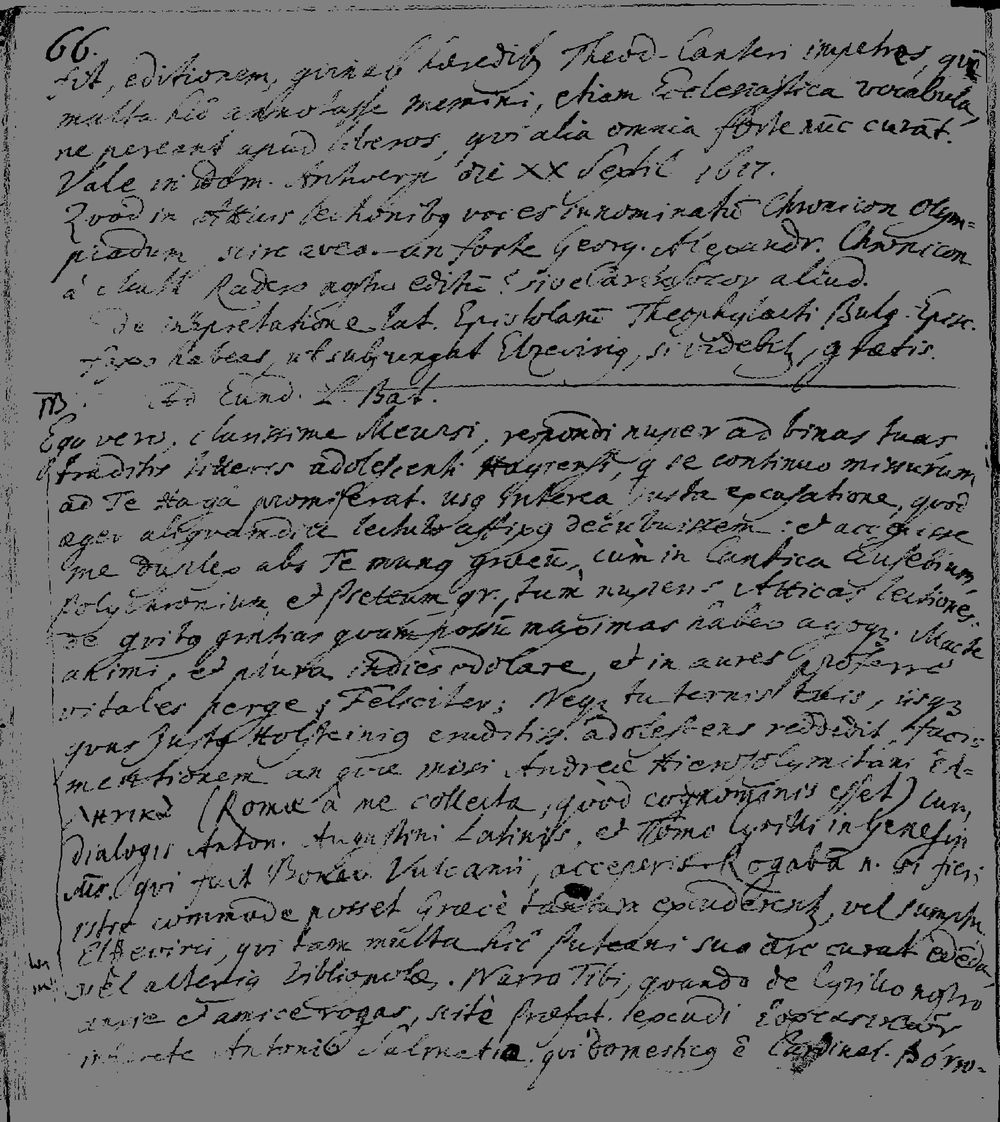 66.
sit, editionem, quin ab hæredib, Theod. Canteri impetres, quē
multa hīc annotasse memini, etiam Ecclesiastica vocabula,
ne pereant apud liberos, qui alia omnia forte nūc curāt.
Vale in Dom. Antverp. die XX Septil 1617.
Quod in Atticis lectionibq voces innominatū Chronicon Olym=
piadum scire aveo. an forte Georg. Alexandr. Chronicon
á Matt Radero nostro editū? sive aliud.
De interpretatione Lat. Epistolarū Theophylacti Bulg. Episc.
faxo habeas, ut subjungat Elzevirig, si videbit, grætis.
Ad Eund. L. Bat.
Ego vero, clarissime Meursi, respondi nuper ad binas tuas
traditis litteris adolescenti Hagiensi, q se continuo missurum
ad Te Haga promiserat. usq interea justa excusatione, quod
æger aliquamdiu lectulo affixq decubuissem: et accepisse
me duplex abs Te munq græcū, cùm in Cantica Eusebium,
Polychronium, et Psellum gr., tùm nuperis Atticas lectiones.
de quibq gratias quam possū maximas habeo agoq. Macte
animi, et plura indies edolare, et in aures proferre
vitales perge, Feliciter; Neq tu ternis tuis, usq
quas Justq Holsteinig eruditiss. adolescens reddidit,
mentionem an quæ misi Andreæ Hierosolymitani
(Romæ à me collecta, quòd cognominis esset) cum
dialogis Anton. Augustini Latinis, et Tomo Cyrilli in Genesin
Ms. qui fuit Bonav. Vulcanii, acceperis. Rogabā n. si fieri
istic commode posset Græcè tantum excuderent, vel sumptu
Elzevirii, qui tam multa hīc Puteani sua ære curat edēda,
vel alterig bibliopolæ. Narro Tibi, quando de Cyrillo nostro
anxie et amice rogas, sitè Præfat. excudi
interprete Antonio Salmatia, qui domesticq ē Cardinal. Borro-